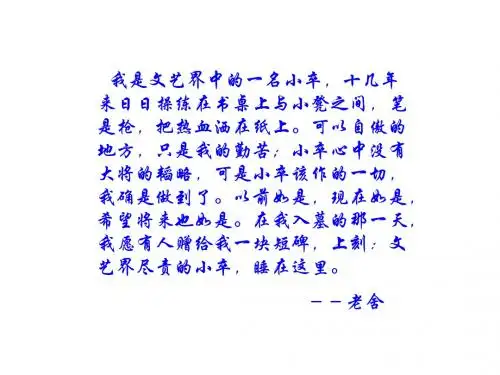 我是文艺界中的一名小卒，十几年
来日日操练在书桌上与小凳之间，笔
是枪，把热血洒在纸上。可以自傲的
地方，只是我的勤苦；小卒心中没有
大将的韬略，可是小卒该作的一切，
我确是做到了。以前如是，现在如是，
希望将来也如是。在我入墓的那一天，
我愿有人赠给我一块短碑，上刻：文
艺界尽责的小卒，睡在这里。
－－老舍